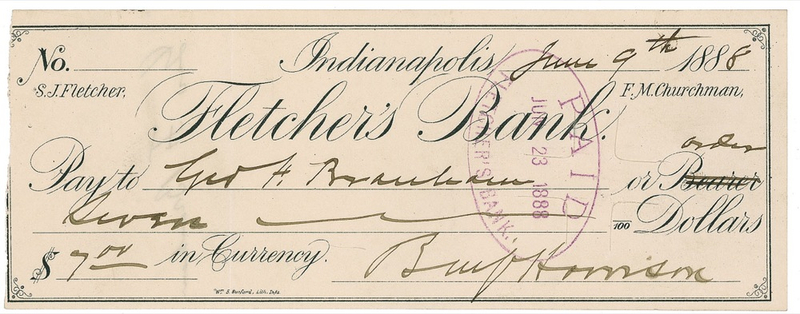 No. Indianapolis, June 9th 1888
S.J. Fletcher, F.M. Churchman,
Fletcher's Bank.
PAID
JUN 23 1888
FLETCHER'S BANK.
order
Pay to Geo F. Branham or Bearer
Seven /100 Dollars
$ 7.00 in Currency. Benj Harrison
Wm. B. Burford, Lith. Indpls